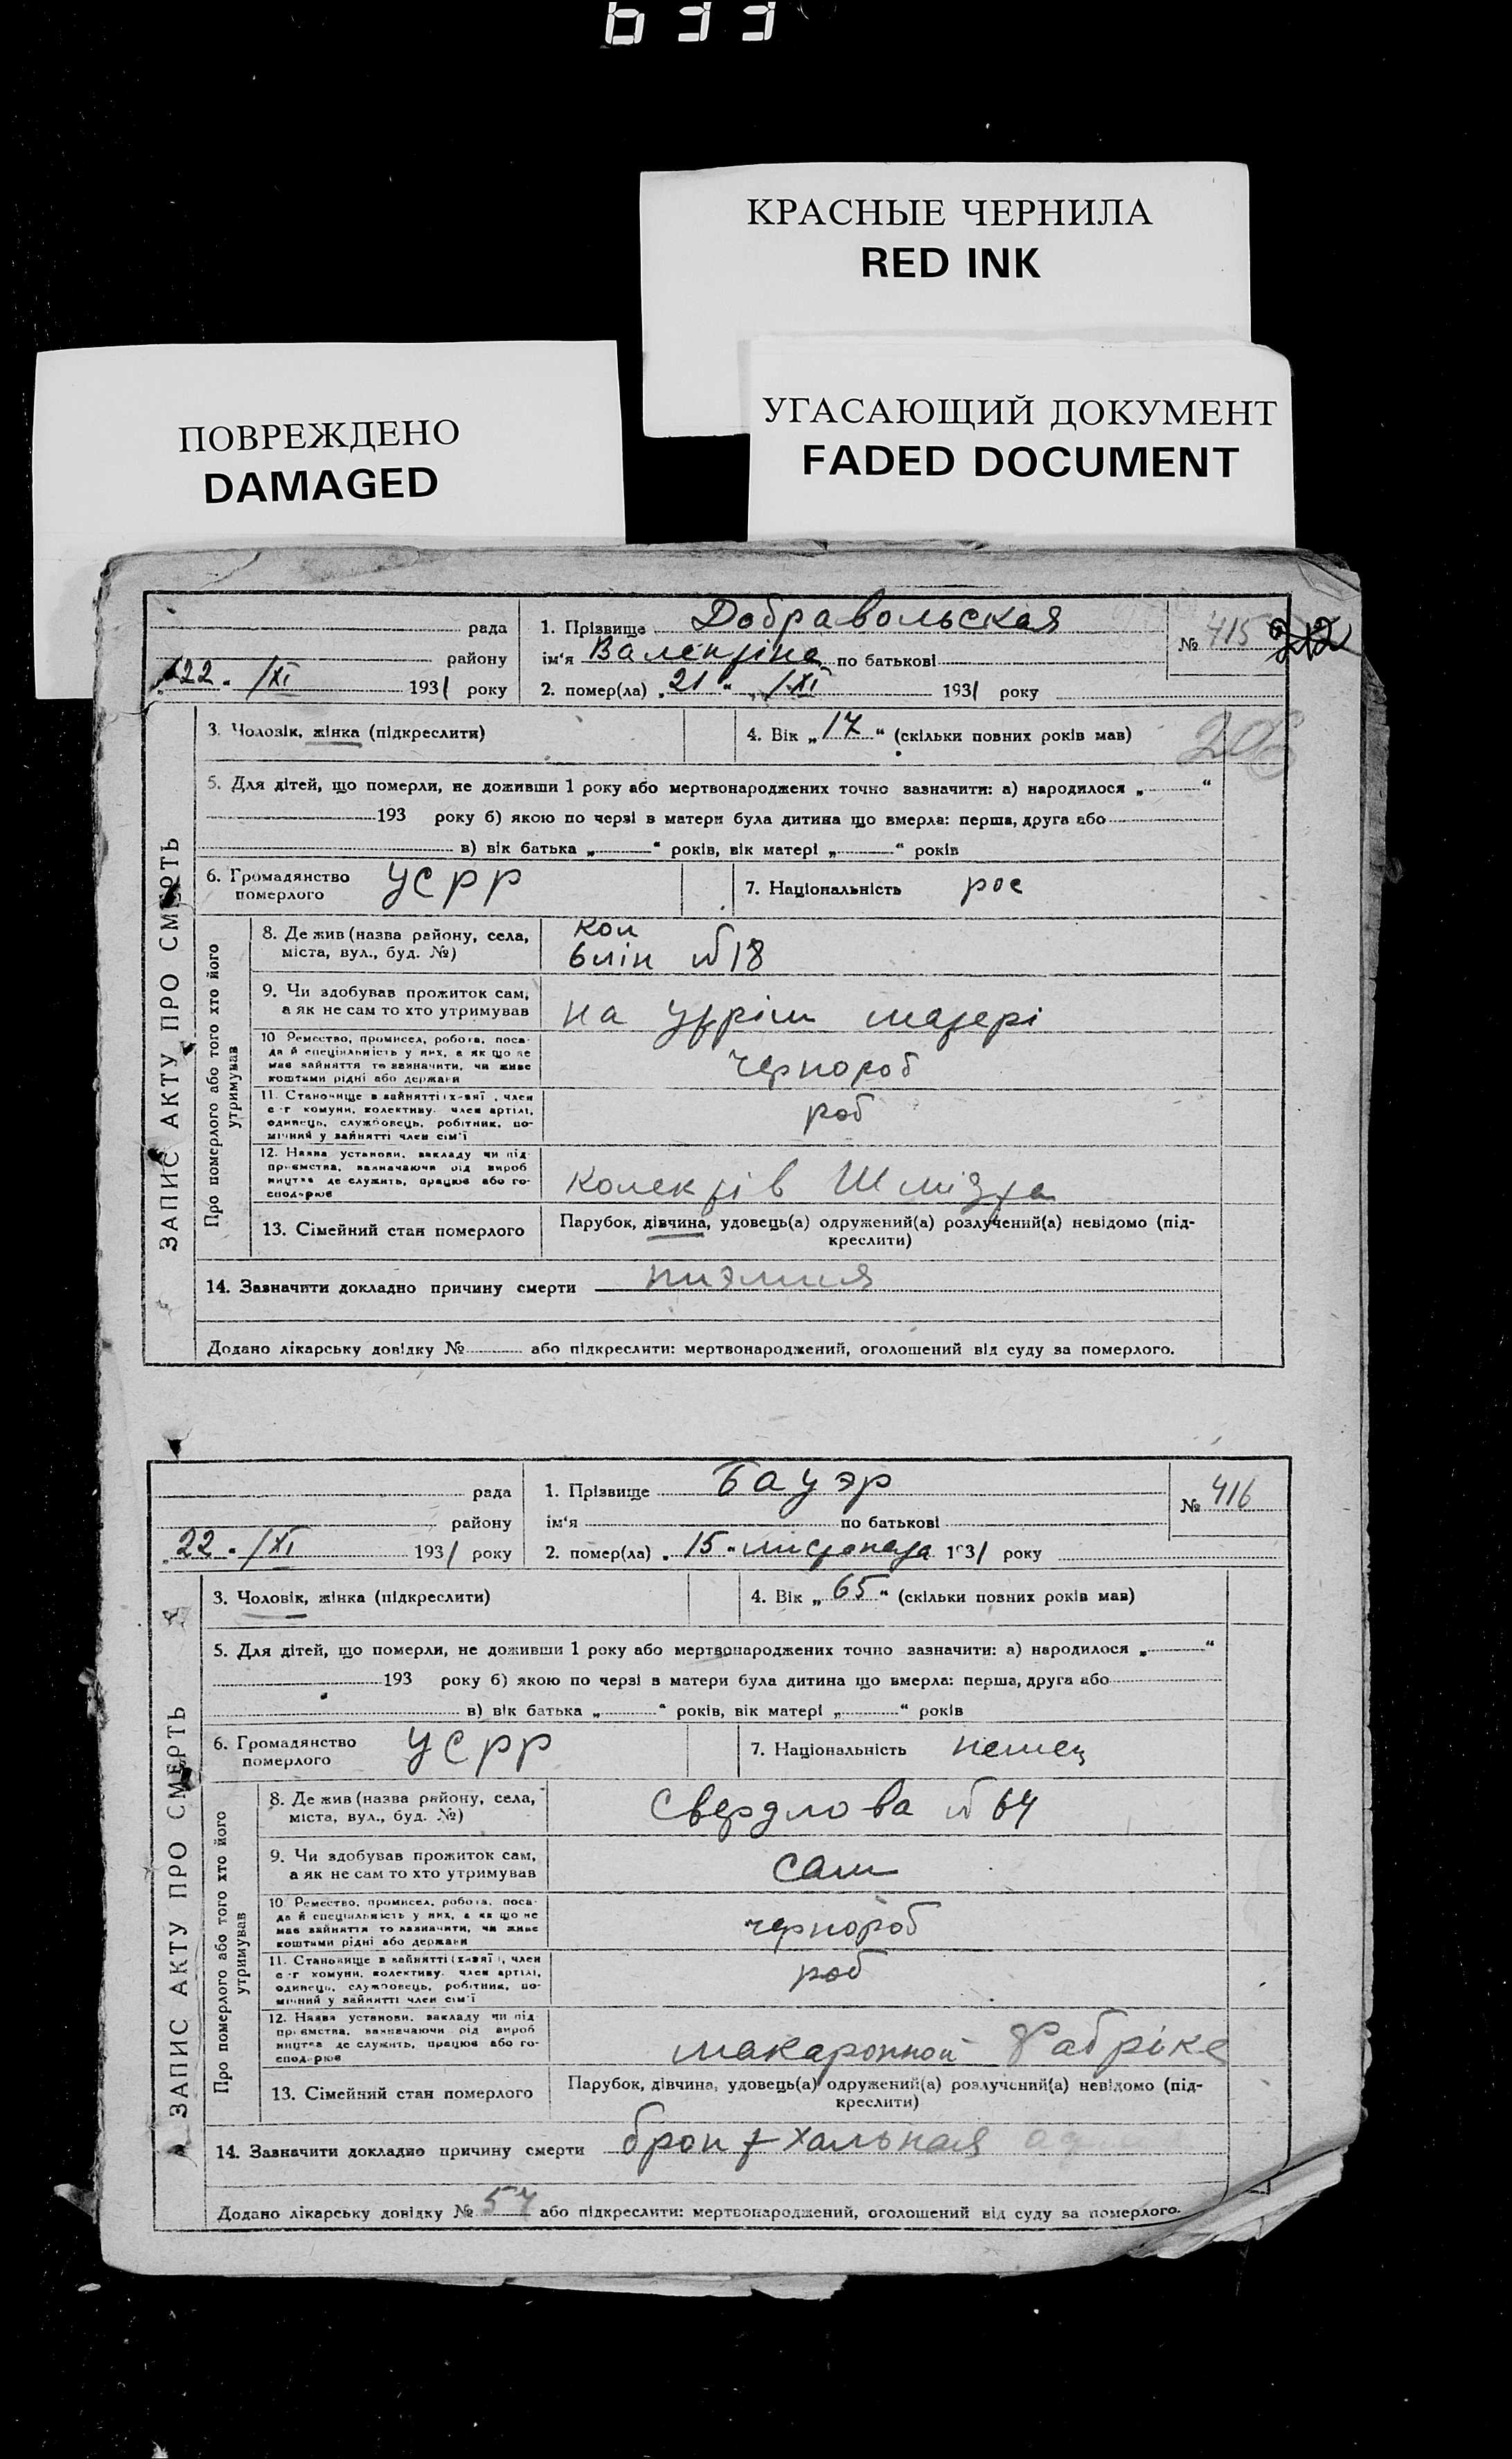 633
КРАСНЫЕ ЧЕРНИЛА
RED INK
ПОВРЕЖДЕНО
DAMAGED
УГАСАЮЩИЙ ДОКУМЕНТ
FADED DOCUMENT
ЗАПИС АКТУ ПРО СМЕРТЬ
рада
району
22 " /XI 1931 року
1. Прізвище Добравольская
ім'я Валентіна по батькові
2. помер(ла) „21" /XI 1931 року
№ 415 212
206
3. Чоловік, жінка (підкреслити)
4. Вік „17" (скільки повних років мав)
5. Для дітей, що померли, не доживши 1 року або мертвонароджених точно зазначити: а) народилося „ "
193 року б) якою по черзі в матери була дитина що вмерла: перша, друга або
в) вік батька „ " років, вік матері „ " років
6. Громадянство померлого УСРР
7. Національність рос
Про померлого або того хто його утримував
8. Де жив (назва району, села, міста, вул., буд. №)
№ 18
9. Чи здобував прожиток сам, а як не сам то хто утримував
на утрім матері
10 Ремество, промисел, робота, посада й спеціяльність у них, а як що не має зайняття то зазначити, чи живе коштами рідні або держави
чернороб
11. Становище в зайнятті (х-зяї, член с-г комуни, колективу, член артілі, одинець, службовець, робітник, помічний у зайнятті член сім'ї
роб
12. Назва установи, закладу чи підприємства, зазначаючи рід виробництва де служить, працює або господарює
колектів Шмідта
13. Сімейний стан померлого
Парубок, дівчина, удовець(а) одружений(а) розлучений(а) невідомо (підкреслити)
14. Зазначити докладно причину смерти пиэмия
Додано лікарську довідку № або підкреслити: мертвонароджений, оголошений від суду за померлого.
ЗАПИС АКТУ ПРО СМЕРТЬ
рада
району
22 " /XI 1931 року
1. Прізвище Бауэр
ім'я по батькові
2. помер(ла) „15" листопада 1931 року
№ 416
3. Чоловік, жінка (підкреслити)
4. Вік „65" (скільки повних років мав)
5. Для дітей, що померли, не доживши 1 року або мертвонароджених точно зазначити: а) народилося „ "
193 року б) якою по черзі в матери була дитина що вмерла: перша, друга або
в) вік батька „ " років, вік матері „ " років
6. Громадянство померлого УСРР
7. Національність немец
Про померлого або того хто його утримував
8. Де жив (назва району, села, міста, вул., буд. №)
Свердлова № 64
9. Чи здобував прожиток сам, а як не сам то хто утримував
сам
10 Ремество, промисел, робота, посада й спеціяльність у них, а як що не має зайняття то зазначити, чи живе коштами рідні або держави
чернороб
11. Становище в зайнятті (х-зяї, член с-г комуни, колективу, член артілі, одинець, службовець, робітник, помічний у зайнятті член сім'ї
роб
12. Назва установи, закладу чи підприємства, зазначаючи рід виробництва де служить, працює або господарює
макаронной фабріке
13. Сімейний стан померлого
Парубок, дівчина, удовець(а) одружений(а) розлучений(а) невідомо (підкреслити)
14. Зазначити докладно причину смерти бронхальная
Додано лікарську довідку № 57 або підкреслити: мертвонароджений, оголошений від суду за померлого.